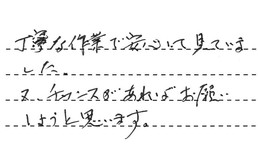 丁寧な作業で安心して見ていま
した。
又、チャンスがあればお願い
しようと思います。